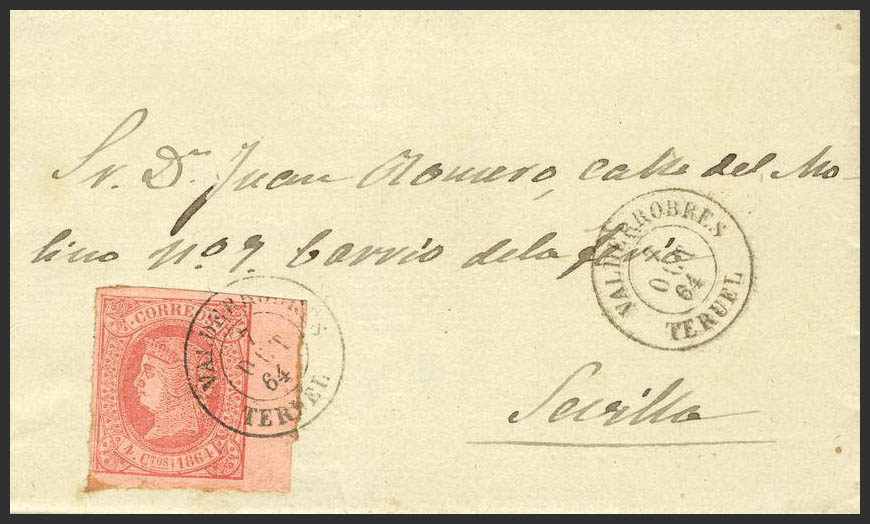 Sr. Dn. Juan Romero, calle del Mo-
lino nº 7. barrio de la
Sevilla
CORREOS
4 CTOS 1864
VALDERROBRES
OCT
64
TERUEL
VALDERROBRES
OCT
64
TERUEL